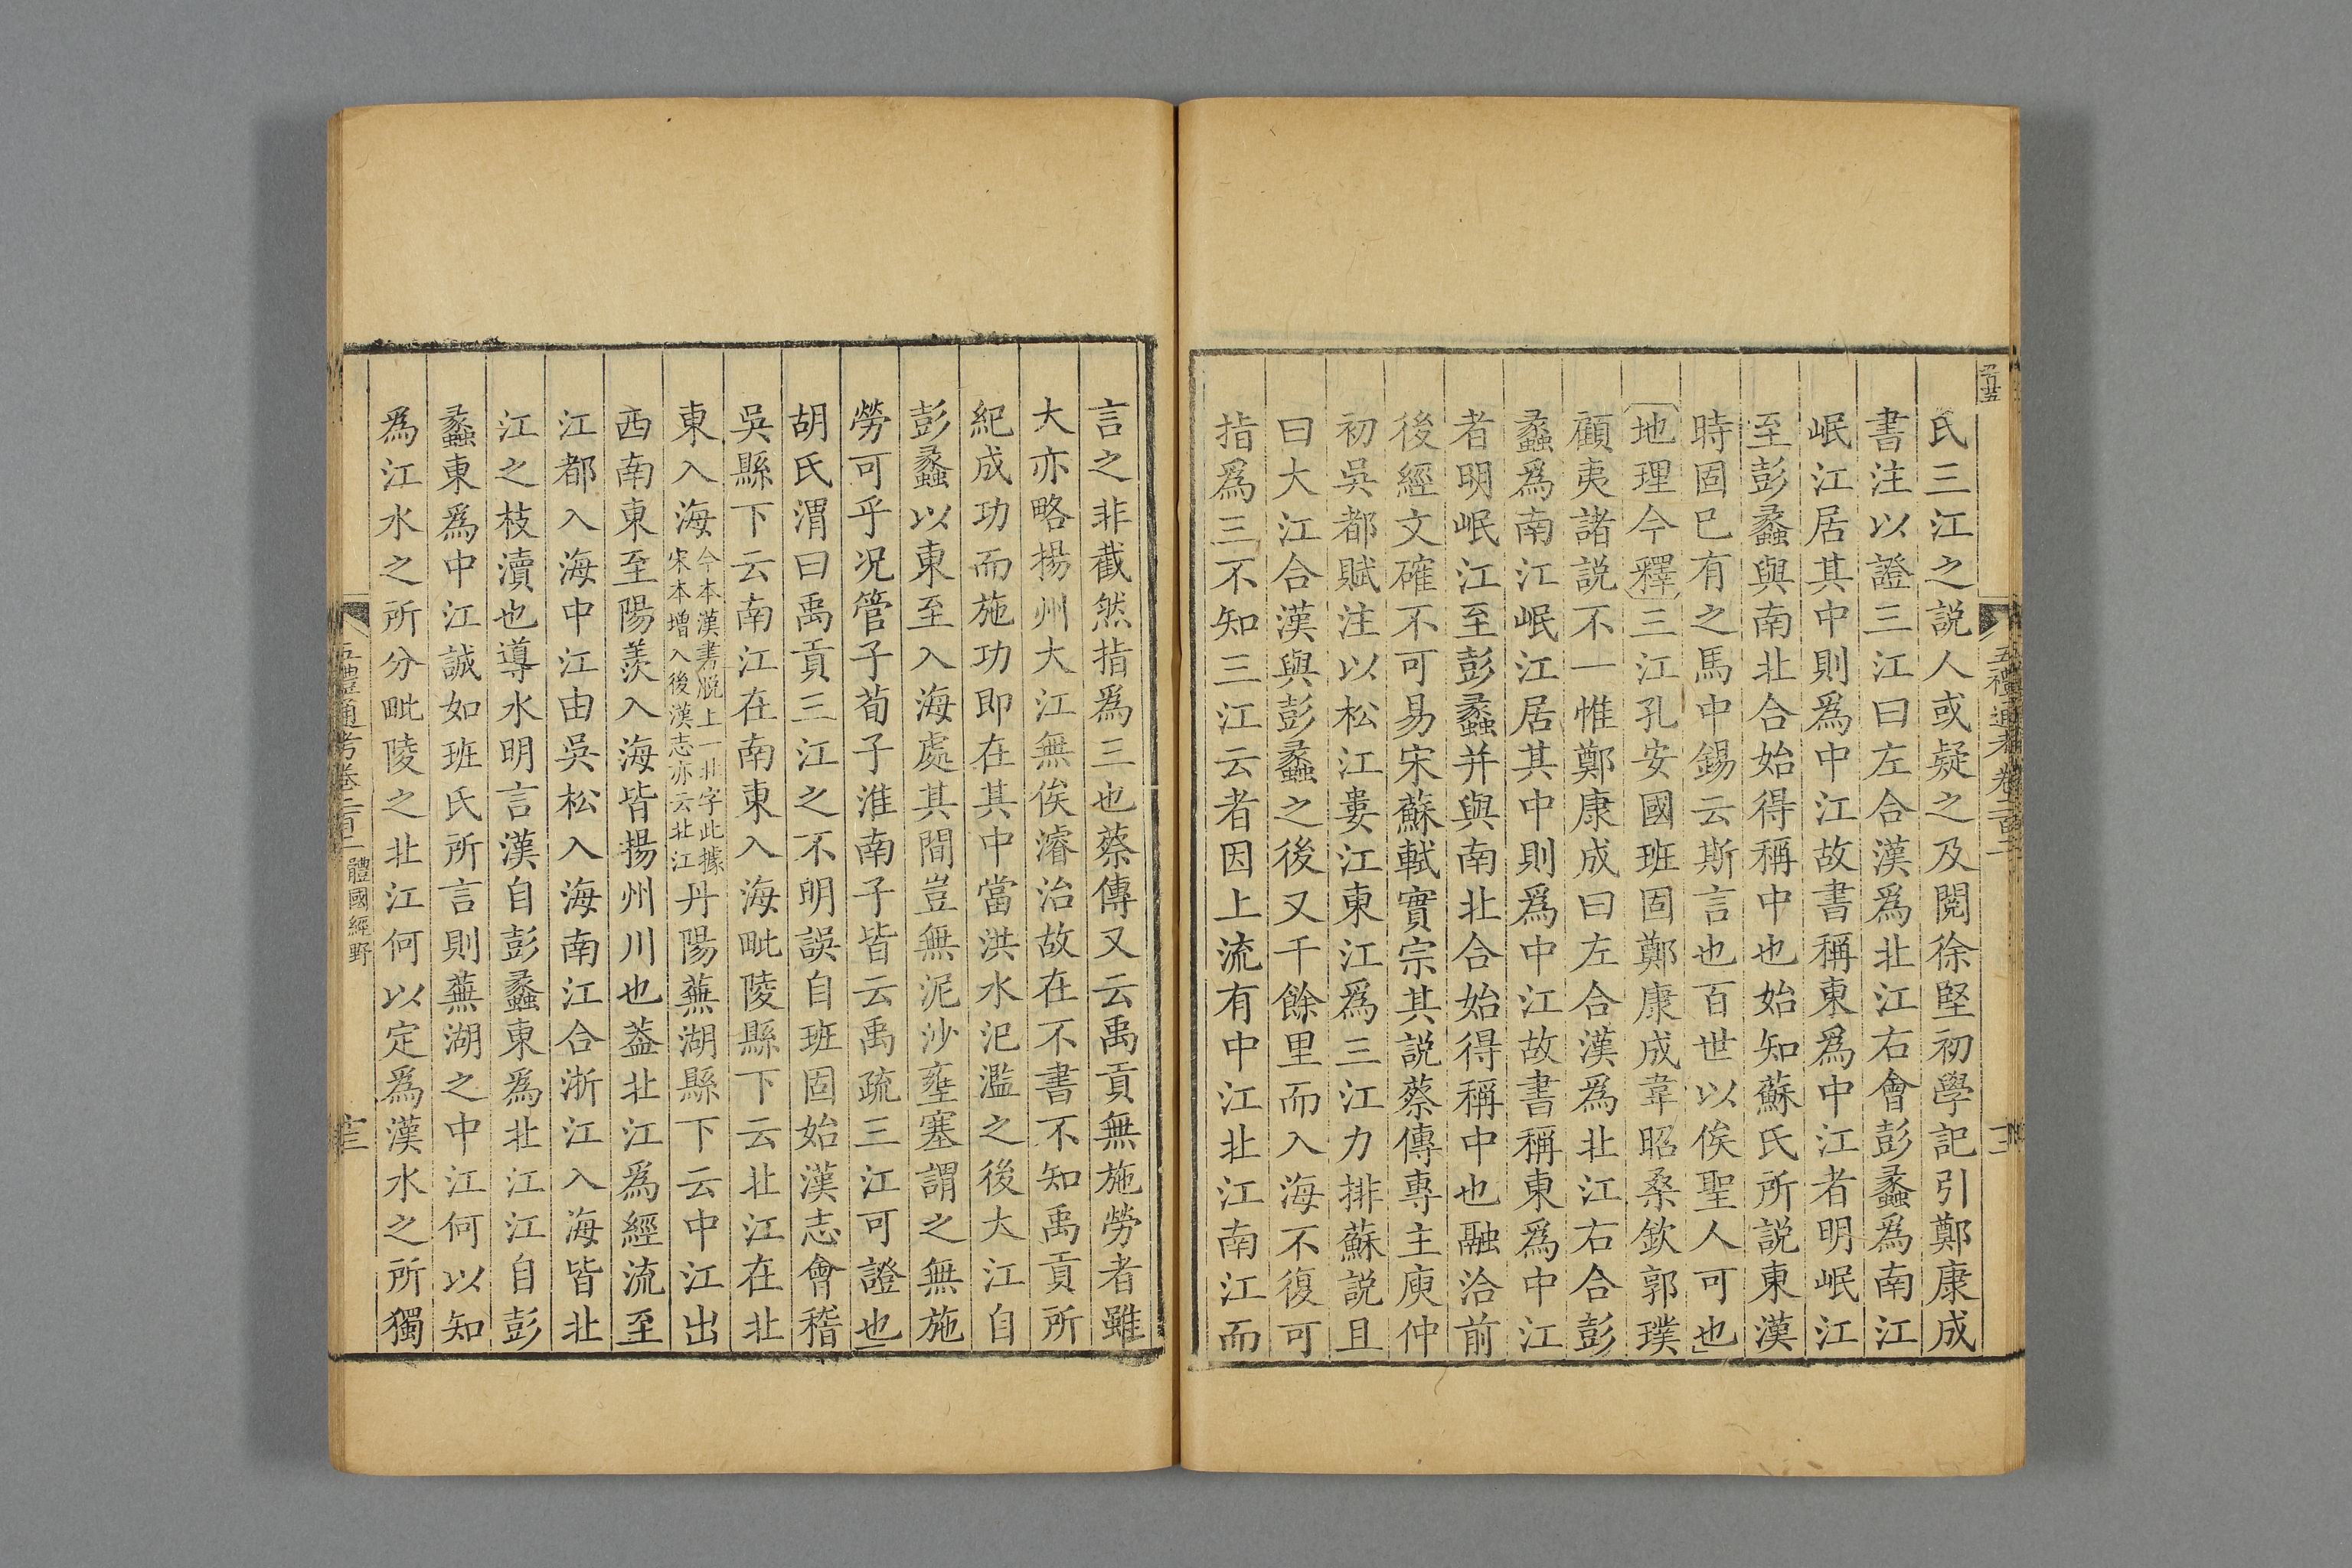 氏三江之説人或疑之及閲徐堅初學記引鄭康成
書注以證三江曰左合漢爲北江右會彭蠡爲南江
岷江居其中則爲中江故書稱東爲中江者明岷江
至彭蠡與南北合始得稱中也始知蘇氏所説東漢
時固已有之馬中錫云斯言也百世以俟聖人可也
地理今釋三江孔安國班固鄭康成韋昭桑欽郭璞
顧夷諸説不一惟鄭康成曰左合漢爲北江右合彭
蠡爲南江岷江居其中則爲中江故書稱東爲中江
者明岷江至彭蠡并與南北合始得稱中也融洽前
後經文確不可易宋蘇軾實宗其説蔡傳專主庾仲
初吳都賦注以松江婁江東江爲三江力排蘇説且
曰大江合漢與彭蠡之後又千餘里而入海不復可
指爲三不知三江云者因上流有中江北江南江而
言之非截然指爲三也蔡傳又云禹貢無施勞者雖
大亦略揚州大江無俟濬治故在不書不知禹貢所
紀成功而施功即在其中當洪水氾濫之後大江自
彭蠡以東至入海處其間豈無泥沙壅塞謂之無施
勞可乎況管子荀子淮南子皆云禹疏三江可證也
胡氏渭曰禹貢三江之不明誤自班固始漢志會稽
吳縣下云南江在南東入海毗陵縣下云北江在北
東入海今本漢書脱上一北字此據宋本增入後漢志亦云北江丹陽蕪湖縣下云中江出
西南東至陽羨入海皆揚州川也蓋北江爲經流至
江都入海中江由吳松入海南江合浙江入海皆北
江之枝瀆也導水明言漢自彭蠡東爲北江江自彭
蠡東爲中江誠如班氏所言則蕪湖之中江何以知
爲江水之所分毗陵之北江何以定爲漢水之所獨
五禮通考卷二百二 體國經野